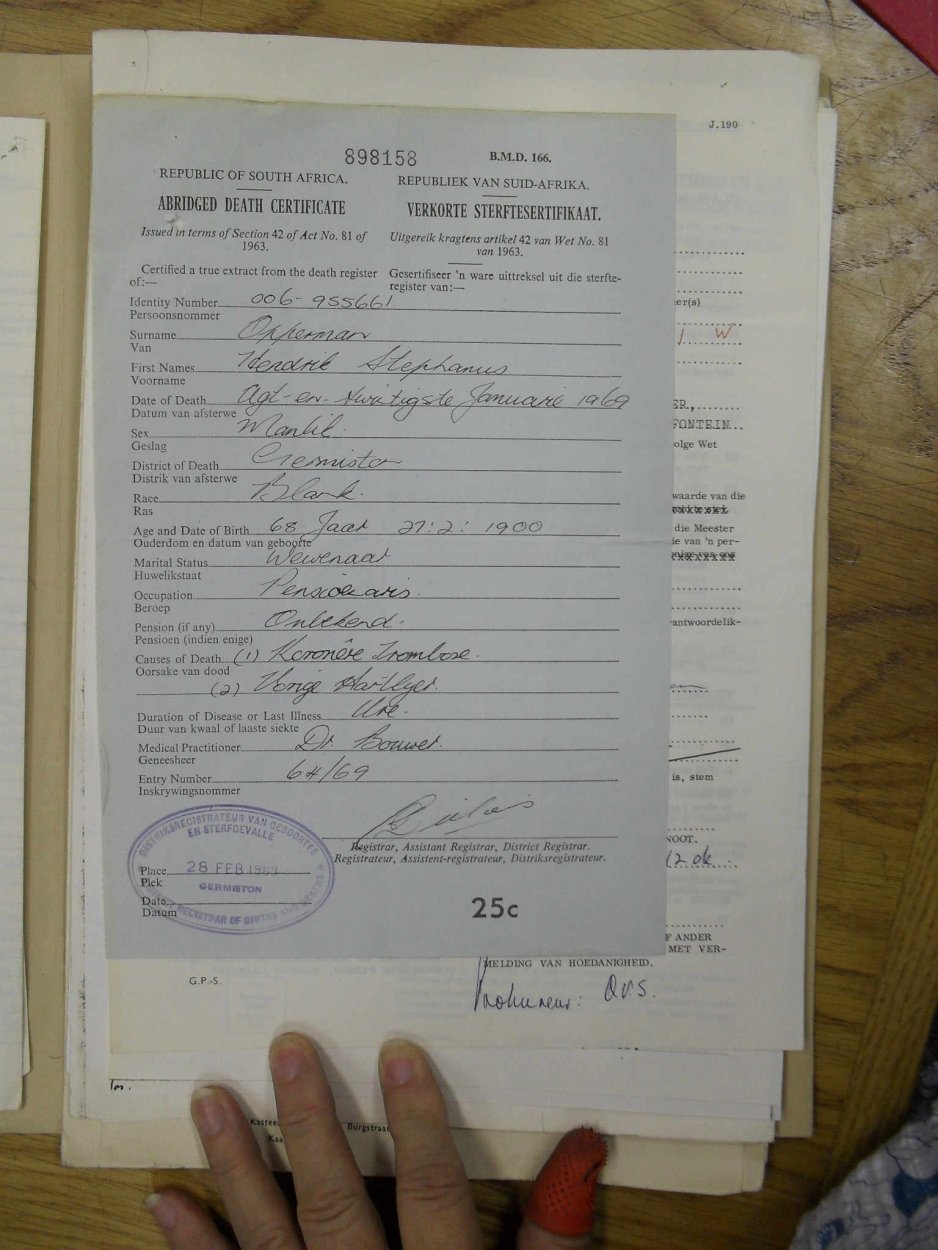 J.190
898158 B.M.D. 166.
REPUBLIC OF SOUTH AFRICA. REPUBLIEK VAN SUID-AFRIKA.
ABRIDGED DEATH CERTIFICATE VERKORTE STERFTESERTIFIKAAT.
Issued in terms of Section 42 of Act No. 81 of Uitgereik kragtens artikel 42 van Wet No. 81
1963. van 1963.
Certified a true extract from the death register Gesertifiseer 'n ware uittreksel uit die sterfte-
of:— register van:—
Identity Number 006-955661
Persoonsnommer
Surname Opperman
Van
First Names Hendrik Stephanus
Voorname
Date of Death Agt-en-twintigste Januarie 1969
Datum van afsterwe
Sex Manlik.
Geslag
District of Death Germiston
Distrik van afsterwe
Race Blank.
Ras
Age and Date of Birth 68 Jaar 27:2:1900
Ouderdom en datum van geboorte
Marital Status Wewenaar
Huwelikstaat
Occupation Pensioenaris.
Beroep
Pension (if any) Onbekend.
Pensioen (indien enige)
Causes of Death (1) Koronêre Trombose.
Oorsake van dood
(2) Vorige Hartlyer.
Duration of Disease or Last Illness Ure.
Duur van kwaal of laaste siekte
Medical Practitioner Dr Bouwer.
Geneesheer
Entry Number 64/69
Inskrywingsnommer
Registrar, Assistant Registrar, District Registrar.
Registrateur, Assistent-registrateur, Distriksregistrateur.
DISTRIKSREGISTRATEUR VAN GEBOORTES
EN STERFGEVALLE
Place 28 FEB 1969
Plek GERMISTON
Date
Datum
REGISTRAR OF BIRTHS AND DEATHS
25c
er(s)
W
ER,
FONTEIN...
olge Wet
waarde van die
die Meester
ie van 'n per-
antwoordelik-
is, stem
NOOT.
F ANDER
MET VER-
MELDING VAN HOEDANIGHEID.
G.P.-S.
Prokureur: O.V.S.
Kasteel
Burgstraat